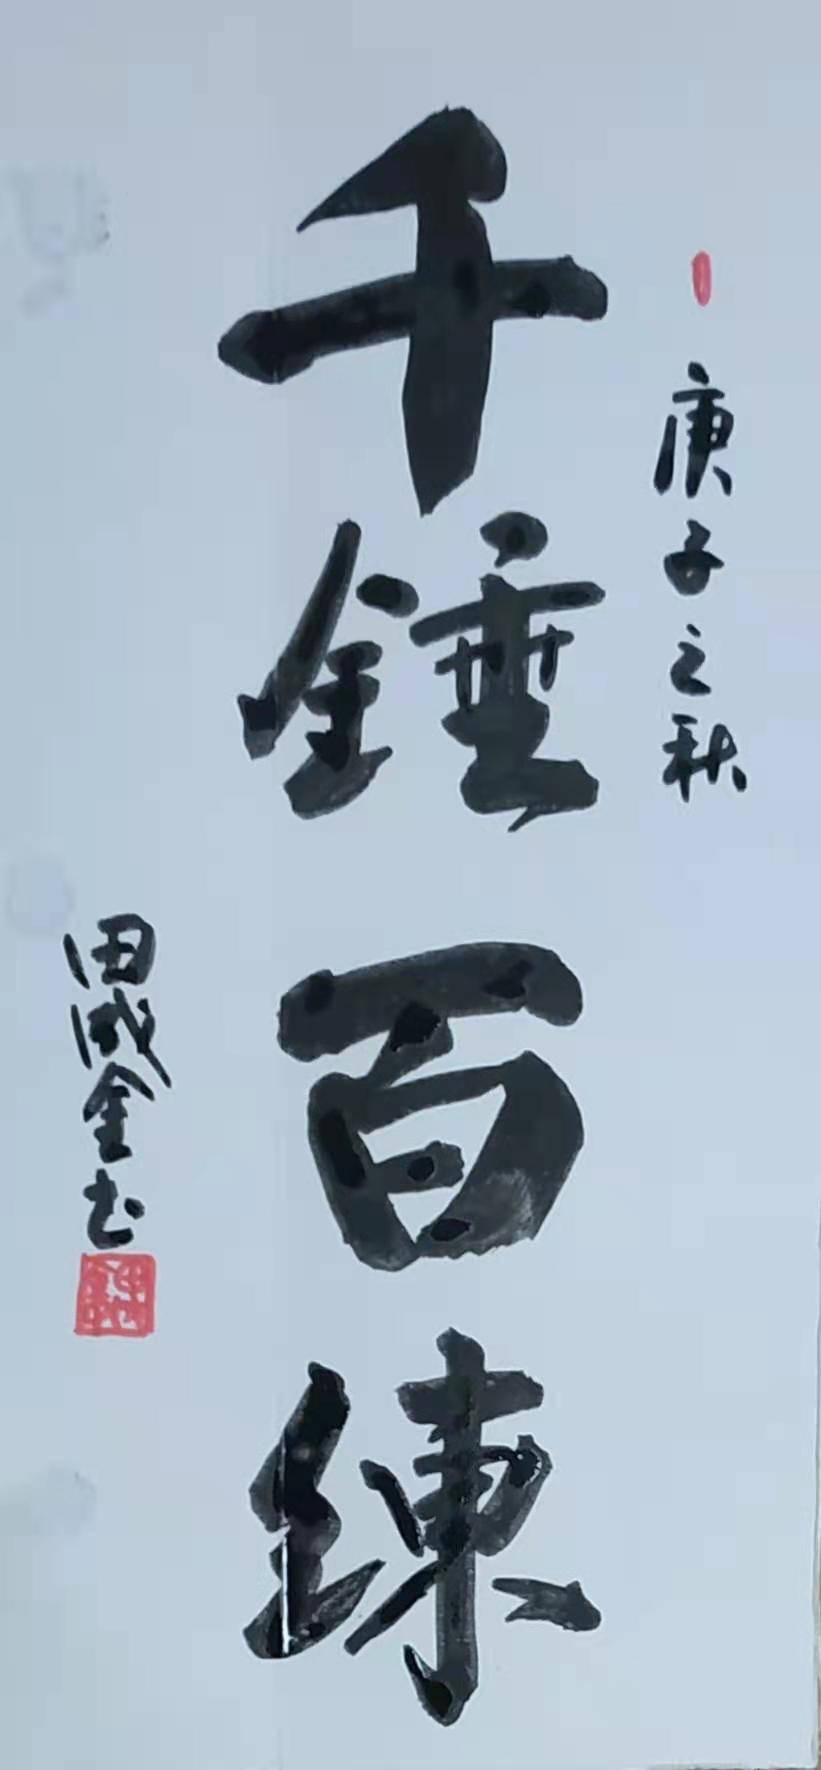 庚子之秋
千錘百練
田成金书